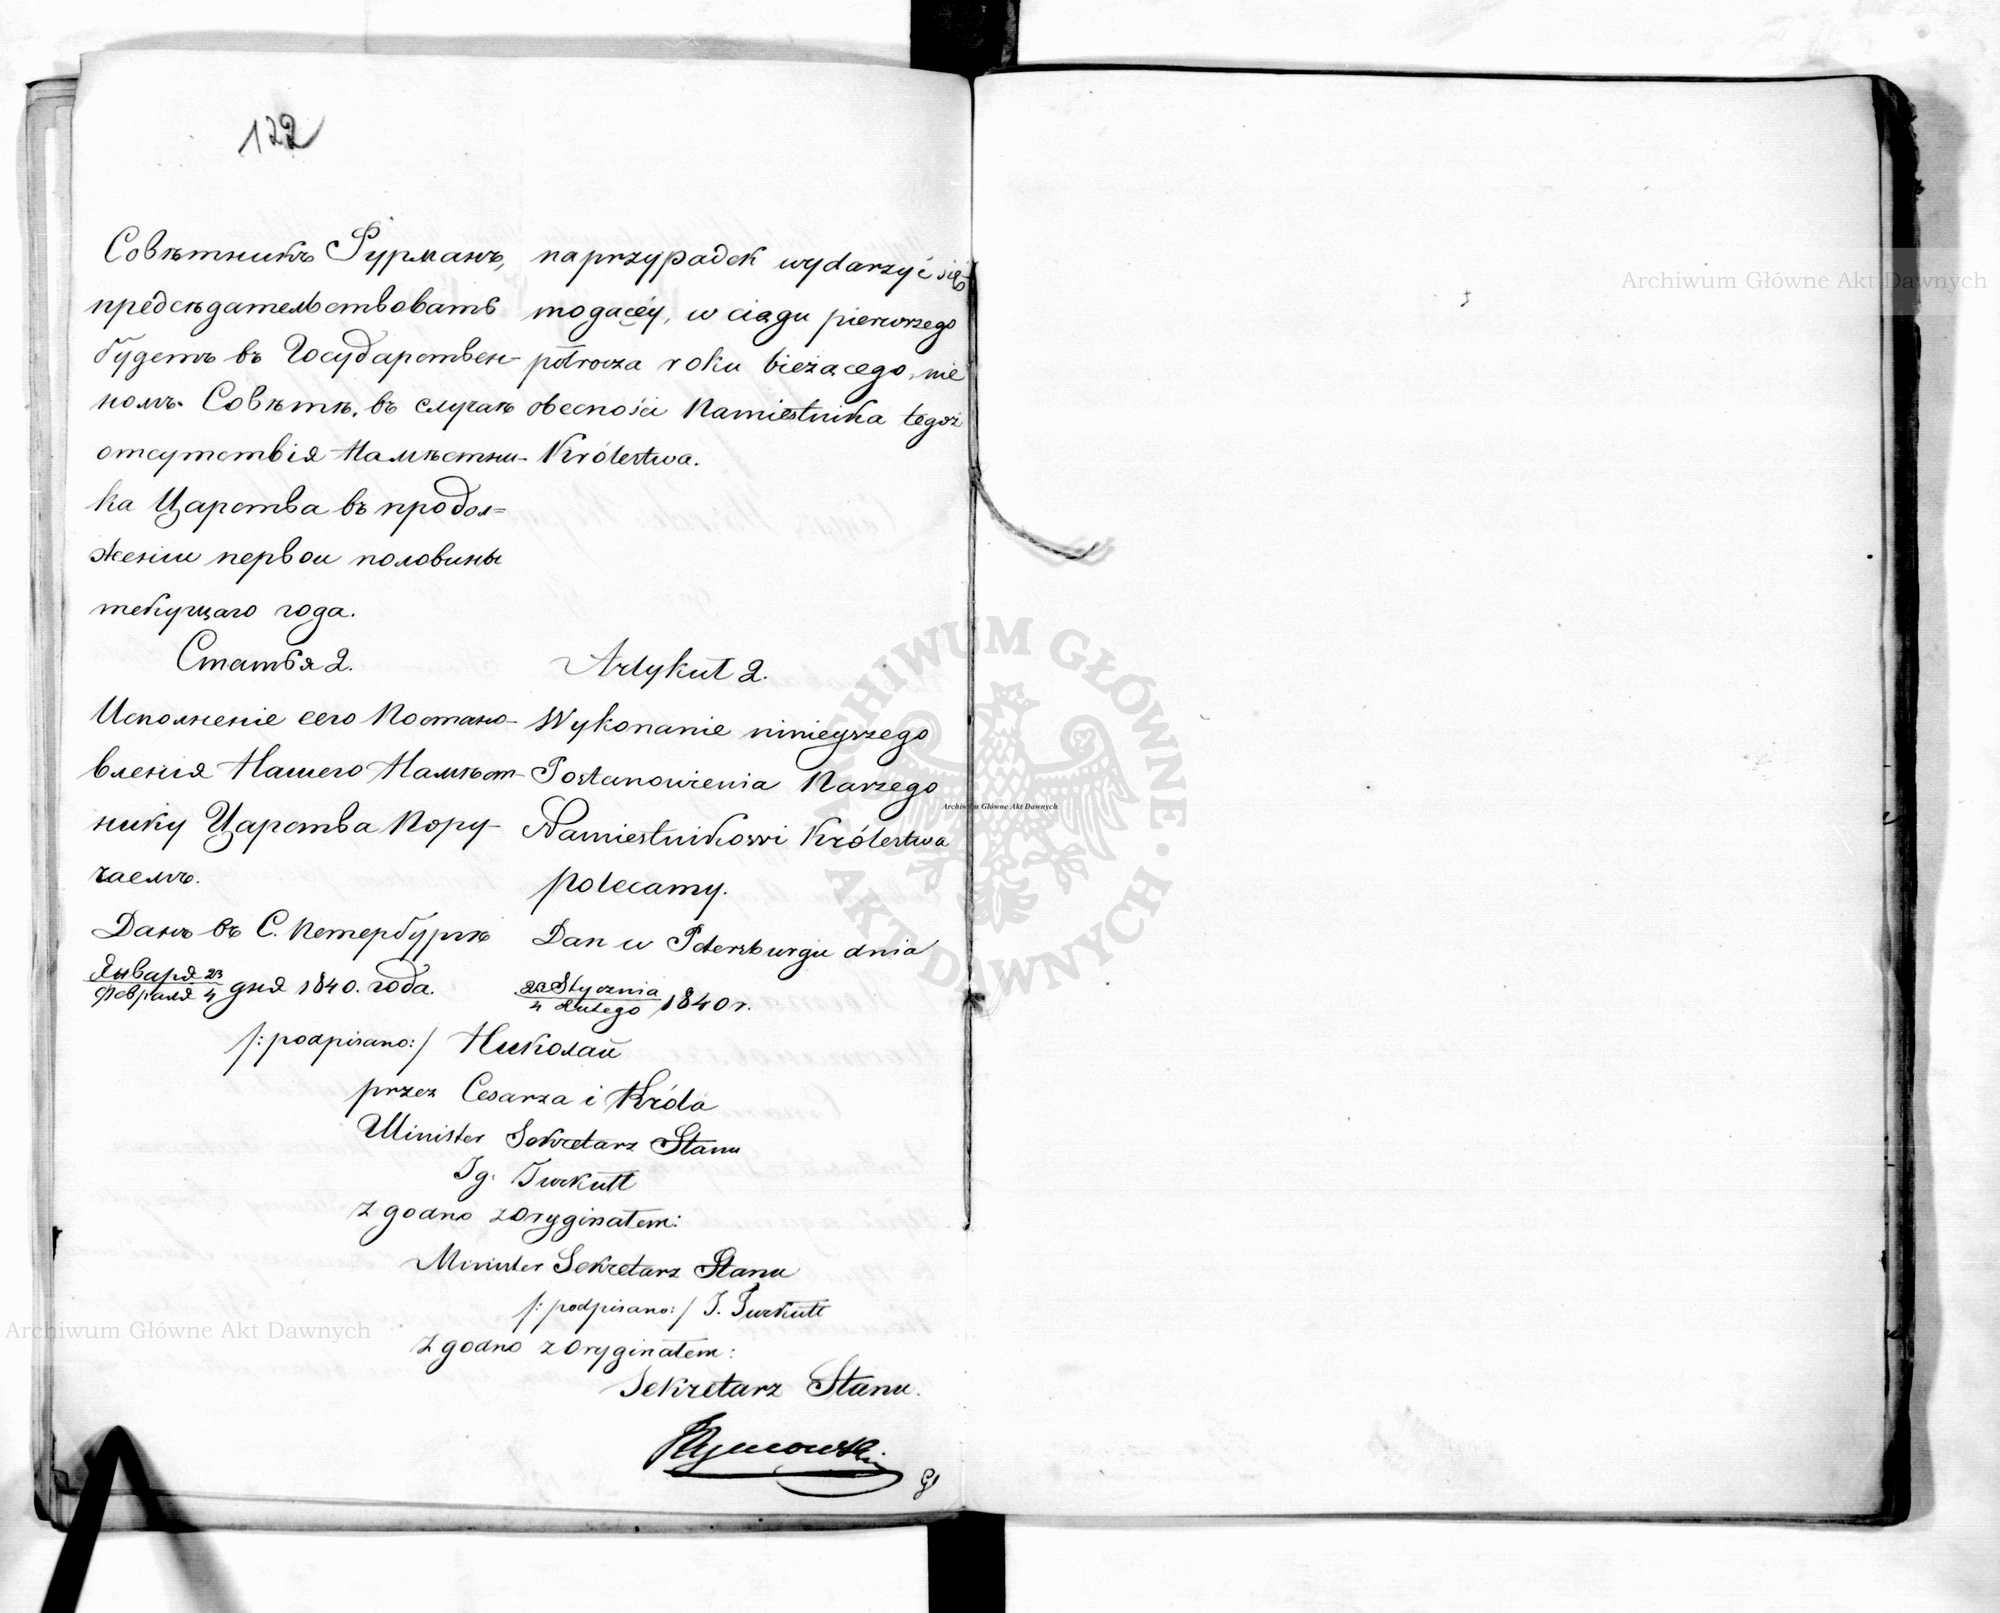 122
Совѣтникъ Фурманъ,
предсѣдательствовать
будетъ въ Государствен-
номъ Совѣтѣ, въ случаѣ
отсутствія Намѣстни-
ка Царства въ продол=
женіи первой половины
текущаго года.
Статья 2.
Исполненіе сего Постано-
вленія Нашего Намѣст-
нику Царства Пору-
чаемъ.
Данъ въ С. Петербургѣ
Января 23
Февраля 4 дня 1840. года.
na przypadek wydarzyć się
mogącéy, w ciągu pierwszego
półrocza roku bieżącego, nie
obecności Namiestnika tegoż
Królestwa.
Artykuł 2.
Wykonanie ninieyszego
Postanowienia Naszego
Namiestnikowi Królestwa
polecamy.
Dan w Petersburgu dnia
23 Stycznia
4 Lutego 1840 r.
/: podpisano:/ Николай
przez Cesarza i Króla
Minister Sekretarz Stanu
Ig. Turkułł
Zgodno z Oryginałem:
Minister Sekretarz Stanu
/: podpisano:/ I. Turkułł
Zgodno z Oryginałem:
Sekretarz Stanu.
Archiwum Główne Akt Dawnych
Archiwum Główne Akt Dawnych
Archiwum Główne Akt Dawnych
ARCHIWUM GŁÓWNE AKT DAWNYCH